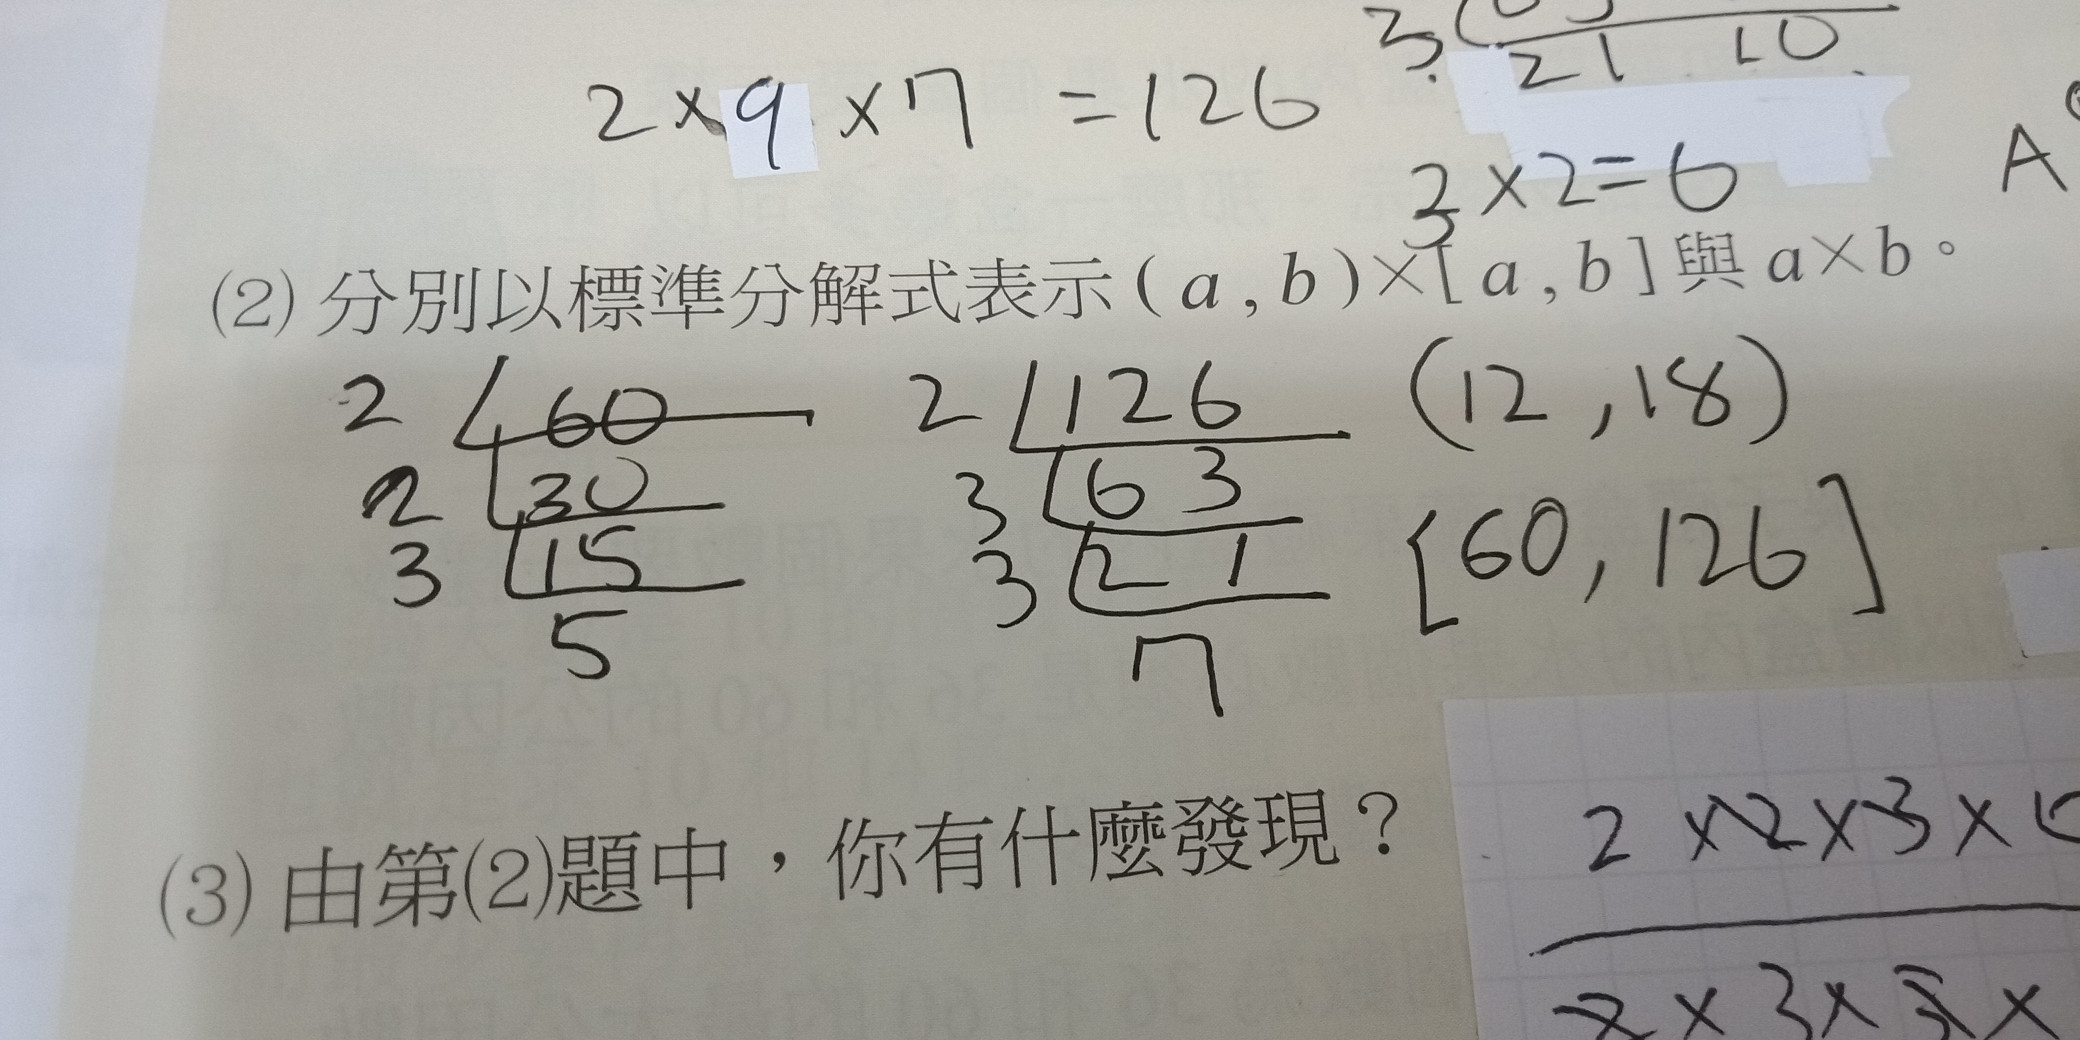 3 21 10
2 × 9 × 7 = 126
3 × 2 = 6
A
(2) 分別以標準分解式表示 ( a , b ) × [ a , b ] 與 a × b。
2 60 2 126 (12 , 18)
2 30 3 63 [60, 126]
3 15 3 21
5 7
(3) 由第(2)題中，你有什麼發現？
2 × 2 × 3 ×
2 × 3 × 3 ×